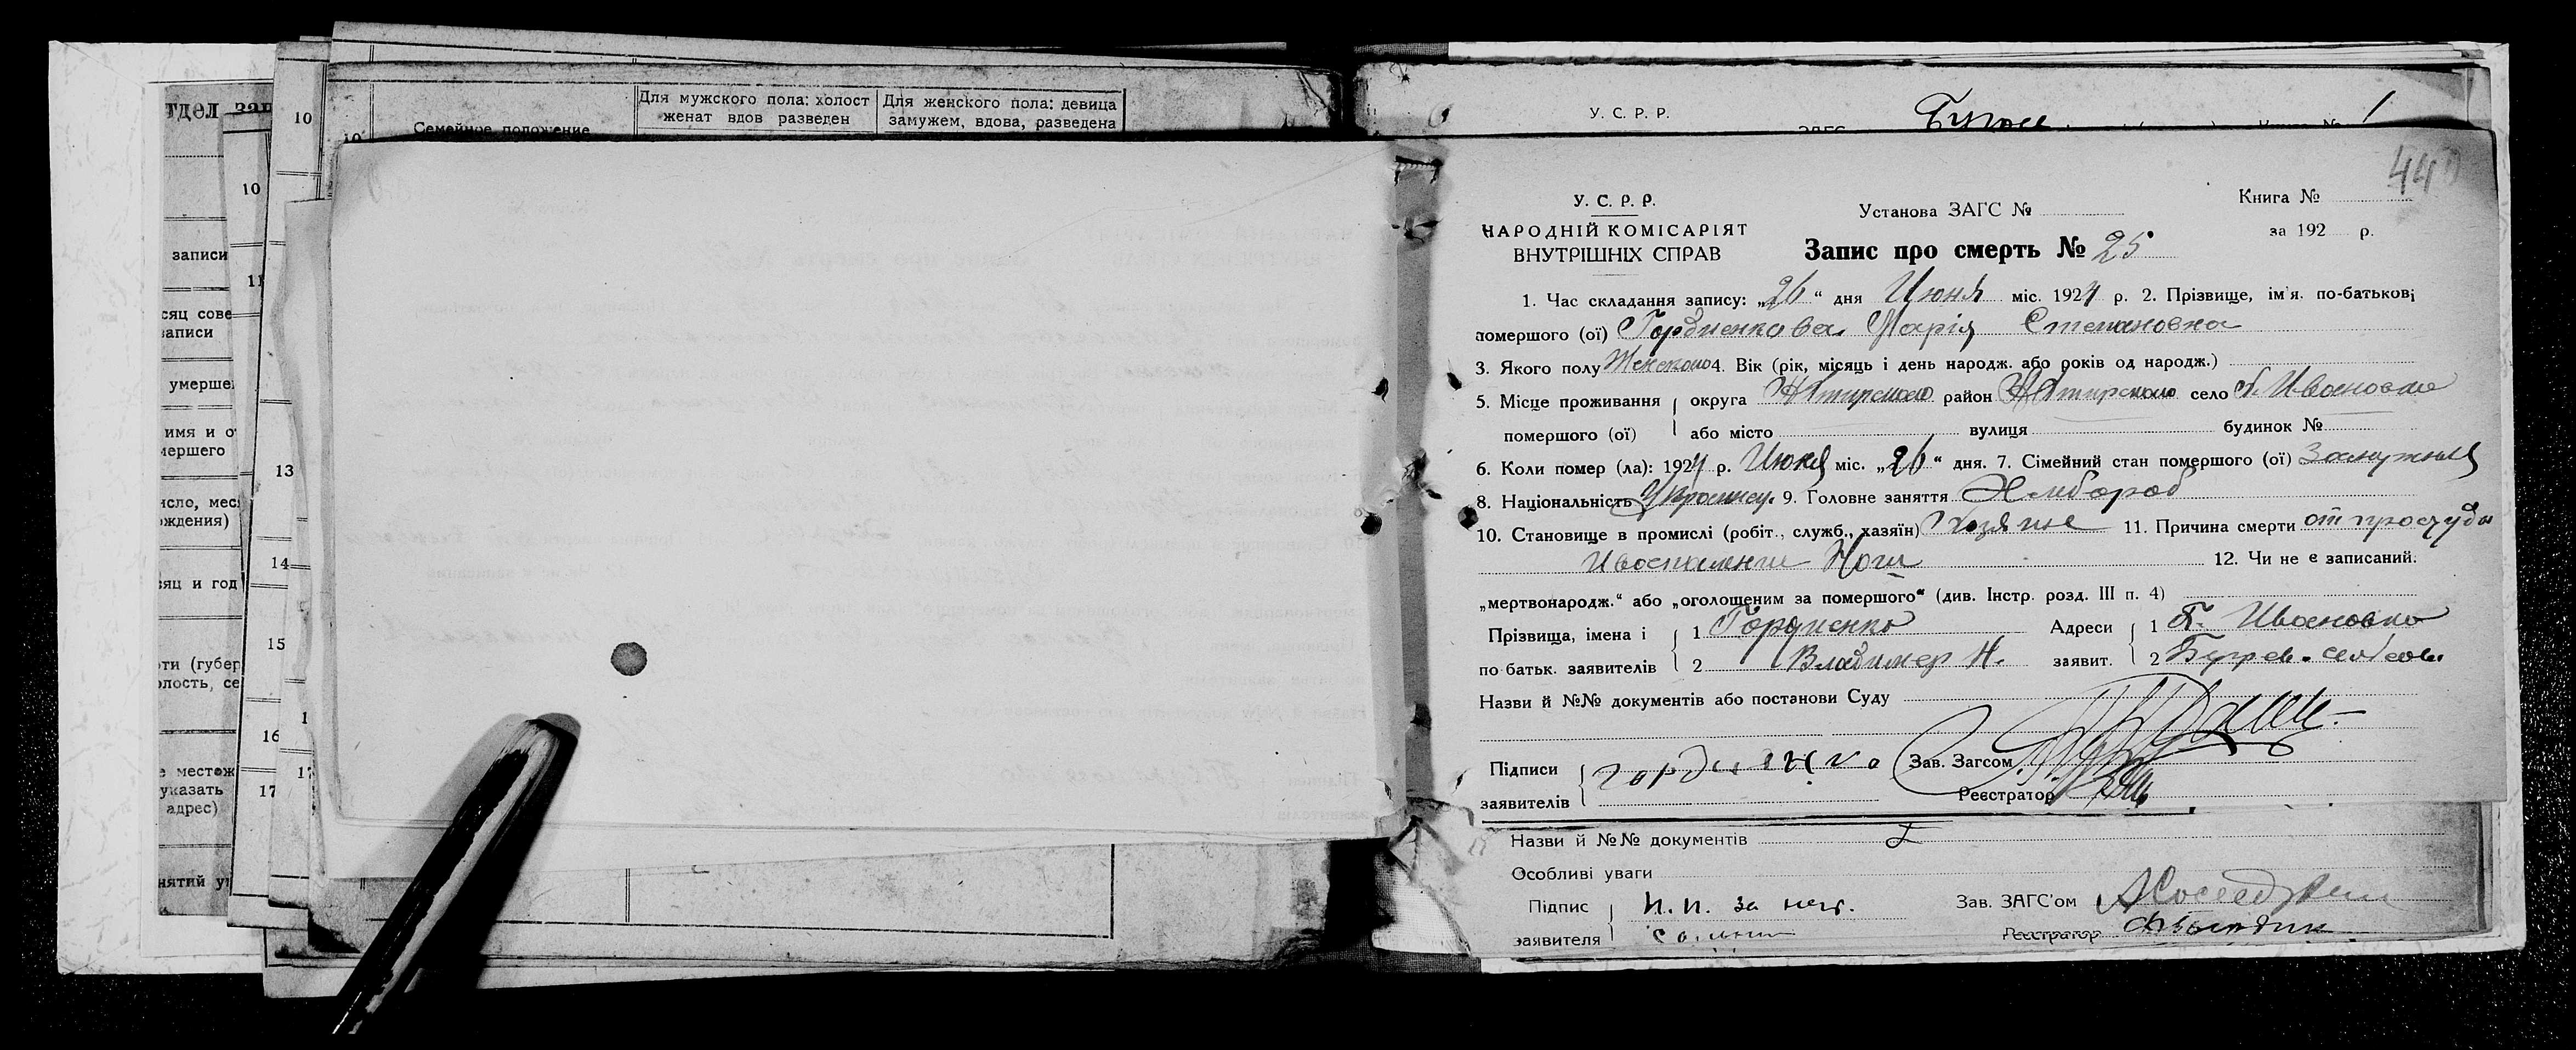 тдел зап
записи
сяц сове
записи
умерше
имя и о
мершего
исло, мес
ождения)
сяц и год
рти (губер
олость, се
е местож
указать
адрес)
нятий у
10
11
10
13
14
15
16
17
Семейное положение
Для мужского пола: холост
женат вдов разведен
Для женского пола: девица
замужем, вдова, разведена
У. С. Р. Р.
440
У. С. Р. Р.
НАРОДНІЙ КОМІСАРІЯТ
ВНУТРІШНІХ СПРАВ
Установа ЗАГС №
Книга №
за 192 р.
Запис про смерть № 25
1. Час складання запису: „26“ дня Июня міс. 1924 р. 2. Прізвище, ім'я. по-батькові
помершого (ої) Гордиенкова Марія Степановна
3. Якого полу Женского 4. Вік (рік, місяць і день народж. або років од народж.)
5. Місце проживання округа район село Ивановка
помершого (ої) або місто вулиця будинок №
6. Коли помер (ла): 1924 р. Июня міс. „26“ дня. 7. Сімейний стан помершого (ої) Замужняя
8. Національність 9. Головне заняття Хлебороб
10. Становище в промислі (робіт., служб., хазяїн) 11. Причина смерти от простуды
И воспаления Ноги 12. Чи не є записаний.
„мертвонародж.“ або „оголошеним за помершого“ (див. Інстр. розд. III п. 4)
Прізвища, імена і 1 Гордиенко Адреси 1 Ивановка
по батьк. заявителів 2 Владимер Н. заявит. 2
Назви й №№ документів або постанови Суду
Підписи гордиенко Зав. Загсом
заявителів Реєстратор
Назви й №№ документів
Особливі уваги
Підпис Зав. ЗАГС'ом
заявителя Реєстратор